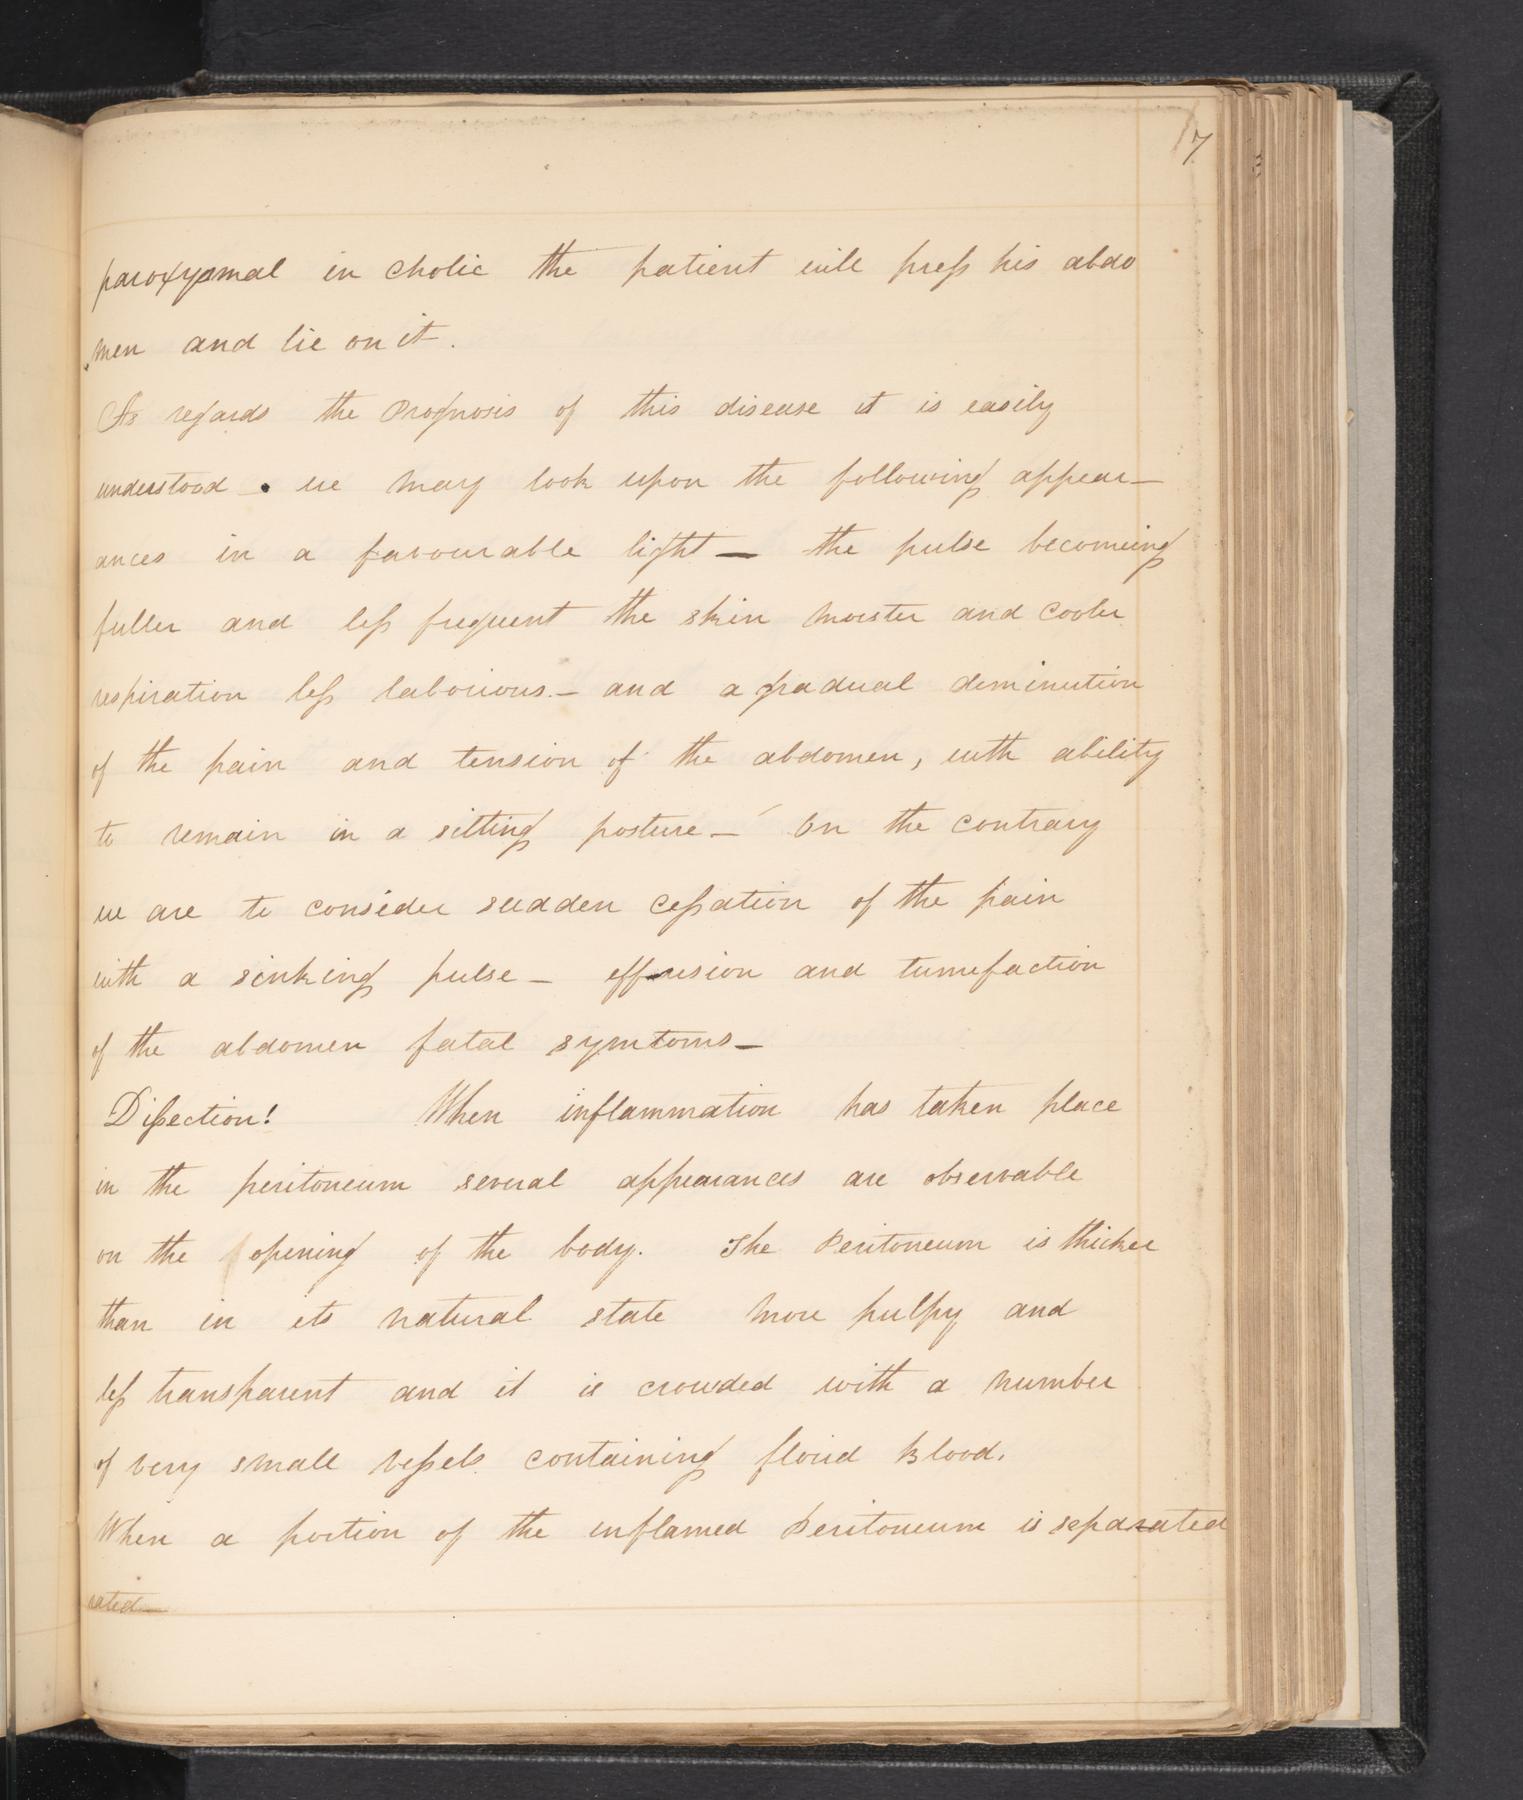 7
paroxysmal in cholic the patient will press his abdo
men and lie on it.
As regards the Prognosis of this disease it is easily
understood. we may look upon the following appear—
ances in a favourable light — the pulse becomeing
fuller and less frequent the skin moister and cooler
respiration less laborious. — and a gradual deminution
of the pain and tension of the abdomen, with ability
to remain in a sitting posture — On the contrary
we are to consider sudden cessation of the pain
with a sinking pulse — effusion and tumefaction
of the abdomen fatal symtoms —
Dissection! When inflammation has taken place
in the peritoneum several appearances are observable
on the opening of the body. The Peritoneum is thicker
than in its natural state more pulpy and
less transparent and it is crowded with a number
of very small vessels containing florid Blood.
When a portion of the inflamed Peritoneum is separated
rated